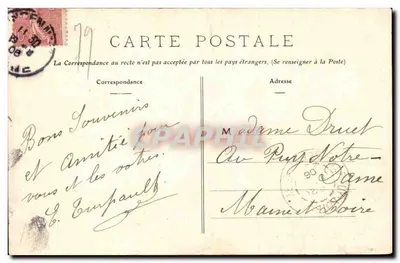 79
CARTE POSTALE
La Correspondance au recto n'est pas acceptée par tous les pays étrangers. (Se renseigner à la Poste)
Correspondance
Adresse
Bons Souvenirs
et Amitié pour
vous et les votres.
E. Turpault
Madame Druet
Au Puy Notre-
Dame
Maine et Loire